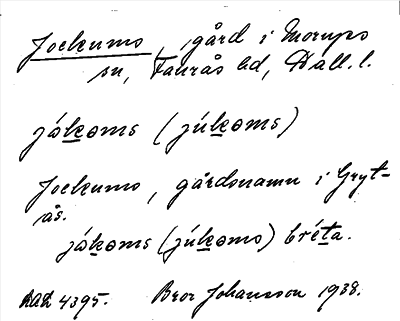 Jockums, gård i Morups
sn, Faurås hd, Hall. l.
jókoms (júkoms)
Jockums, gårdsnamn i Gryt-
ås.
jókoms (júkoms) bréta.
4395. Bror Johansson 1938.